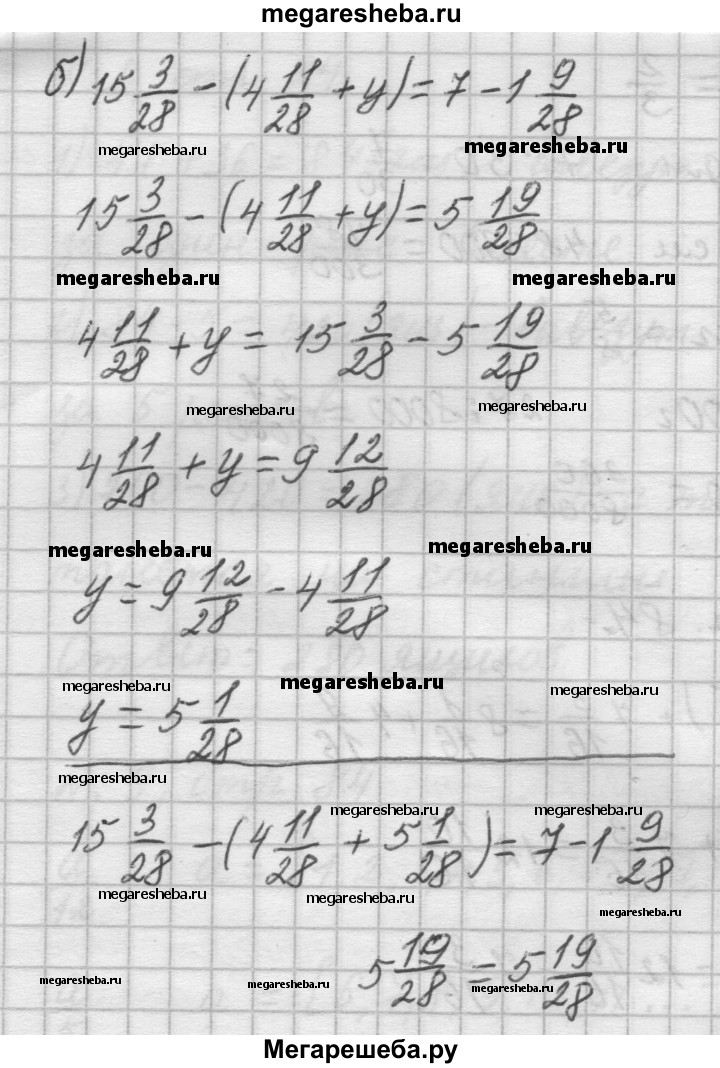 megaresheba.ru
б) 15 3/28 - (4 11/28 + y) = 7 - 1 9/28
megaresheba.ru megaresheba.ru
15 3/28 - (4 11/28 + y) = 5 19/28
megaresheba.ru megaresheba.ru
4 11/28 + y = 15 3/28 - 5 19/28
megaresheba.ru megaresheba.ru
4 11/28 + y = 9 12/28
megaresheba.ru megaresheba.ru
y = 9 12/28 - 4 11/28
megaresheba.ru megaresheba.ru megaresheba.ru
y = 5 1/28
megaresheba.ru megaresheba.ru megaresheba.ru
15 3/28 - (4 11/28 + 5 1/28) = 7 - 1 9/28
megaresheba.ru megaresheba.ru megaresheba.ru
5 19/28 = 5 19/28
megaresheba.ru megaresheba.ru megaresheba.ru
Мегарешеба.ру